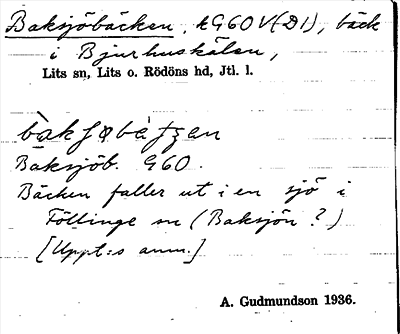 Baksjöbäcken, kG60V(D1), bäck
i Bjurhuskälen,
Lits sn, Lits o. Rödöns hd, Jtl. l.
Baksjöb. G60.
Bäcken faller ut i en sjö i
Föllinge sn (Baksjön?)
[Uppt:s anm.]
A. Gudmundson 1936.